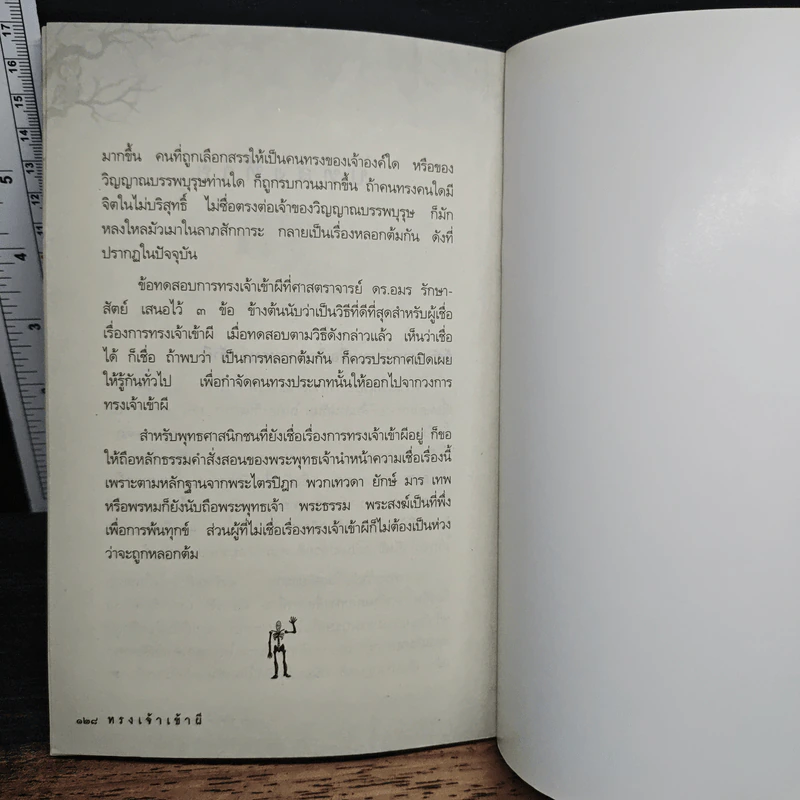 มากขึ้น คนที่ถูกเลือกสรรให้เป็นคนทรงของเจ้าองค์ใด หรือของ
วิญญาณบรรพบุรุษท่านใด ก็ถูกรบกวนมากขึ้น ถ้าคนทรงคนใดมี
จิตใจไม่บริสุทธิ์ ไม่ซื่อตรงต่อเจ้าของวิญญาณบรรพบุรุษ ก็มัก
หลงใหลมัวเมาในลาภสักการะ กลายเป็นเรื่องหลอกต้มกัน ดังที่
ปรากฏในปัจจุบัน
ข้อทดสอบการทรงเจ้าเข้าผีที่ศาสตราจารย์ ดร.อมร รักษา-
สัตย์ เสนอไว้ ๓ ข้อ ข้างต้นนับว่าเป็นวิธีที่ดีที่สุดสำหรับผู้เชื่อ
เรื่องการทรงเจ้าเข้าผี เมื่อทดสอบตามวิธีดังกล่าวแล้ว เห็นว่าเชื่อ
ได้ ก็เชื่อ ถ้าพบว่า เป็นการหลอกต้มกัน ก็ควรประกาศเปิดเผย
ให้รู้กันทั่วไป เพื่อกำจัดคนทรงประเภทนั้นให้ออกไปจากวงการ
ทรงเจ้าเข้าผี
สำหรับพุทธศาสนิกชนที่ยังเชื่อเรื่องการทรงเจ้าเข้าผีอยู่ ก็ขอ
ให้ถือหลักธรรมคำสั่งสอนของพระพุทธเจ้านำหน้าความเชื่อเรื่องนี้
เพราะตามหลักฐานจากพระไตรปิฎก พวกเทวดา ยักษ์ มาร เทพ
หรือพรหมก็ยังนับถือพระพุทธเจ้า พระธรรม พระสงฆ์เป็นที่พึ่ง
เพื่อการพ้นทุกข์ ส่วนผู้ที่ไม่เชื่อเรื่องทรงเจ้าเข้าผีก็ไม่ต้องเป็นห่วง
ว่าจะถูกหลอกต้ม
๑๒๘ ทรงเจ้าเข้าผี
17
16
15
14
13
12
5
4
3